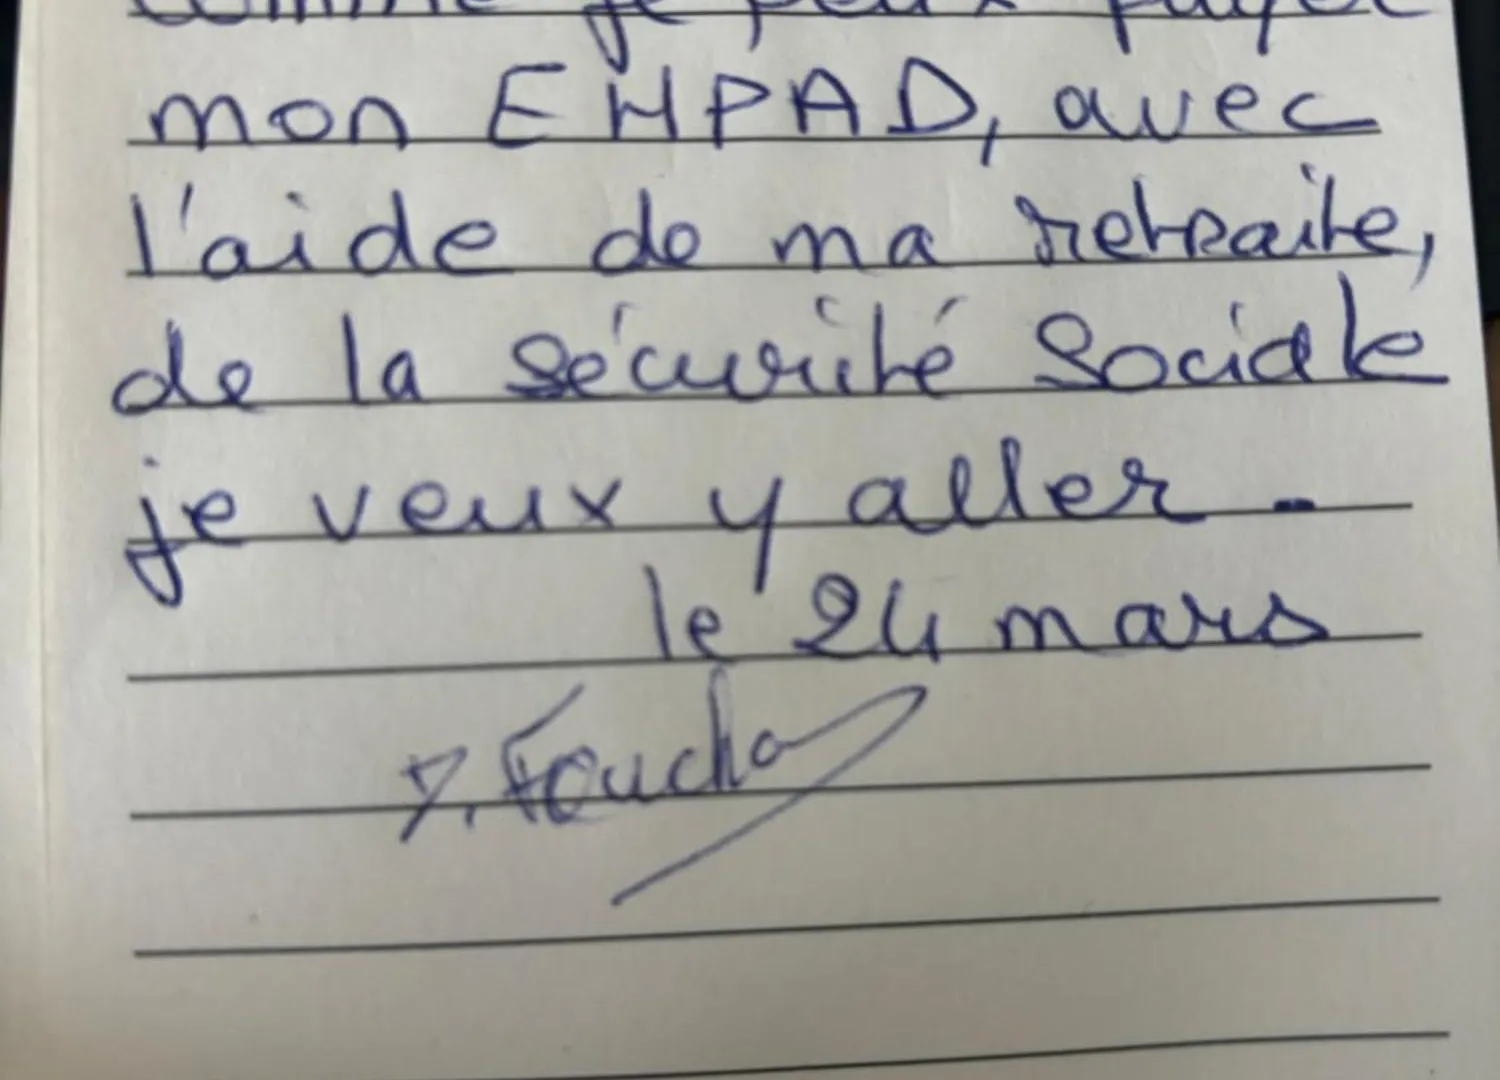 comme je peux payer
mon EHPAD, avec
l'aide de ma retraite,
de la sécurité Sociale
je veux y aller -
le 24 mars